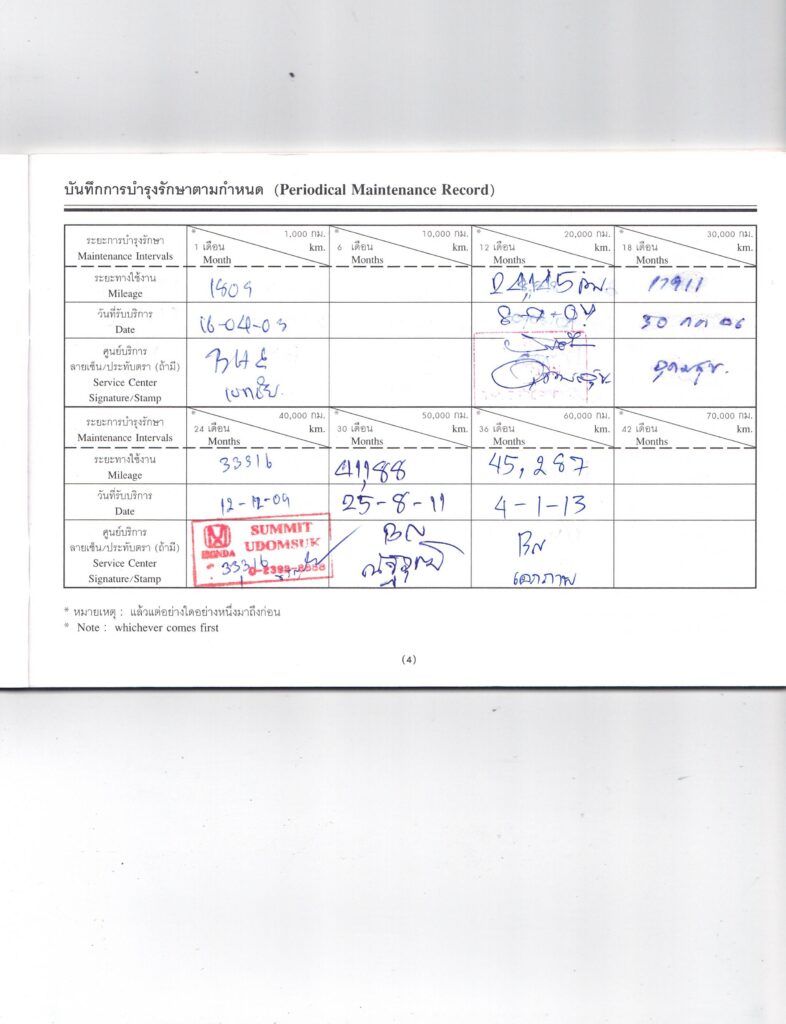 บันทึกการบำรุงรักษาตามกำหนด (Periodical Maintenance Record)
ระยะการบำรุงรักษา
Maintenance Intervals
* 1 เดือน
Month
1,000 กม.
km.
* 6 เดือน
Months
10,000 กม.
km.
* 12 เดือน
Months
20,000 กม.
km.
* 18 เดือน
Months
30,000 กม.
km.
ระยะทางใช้งาน
Mileage
1809
24,145 กม.
17911
วันที่รับบริการ
Date
16-04-03
30 กค 06
ศูนย์บริการ
ลายเซ็น/ประทับตรา (ถ้ามี)
Service Center
Signature/Stamp
อุดมสุข.
ระยะการบำรุงรักษา
Maintenance Intervals
* 24 เดือน
Months
40,000 กม.
km.
* 30 เดือน
Months
50,000 กม.
km.
* 36 เดือน
Months
60,000 กม.
km.
* 42 เดือน
Months
70,000 กม.
km.
ระยะทางใช้งาน
Mileage
33316
41,188
45,287
วันที่รับบริการ
Date
12-12-09
25-8-11
4-1-13
ศูนย์บริการ
ลายเซ็น/ประทับตรา (ถ้ามี)
Service Center
Signature/Stamp
HONDA
SUMMIT
UDOMSUK
33316
* หมายเหตุ : แล้วแต่อย่างใดอย่างหนึ่งมาถึงก่อน
* Note : whichever comes first
(4)